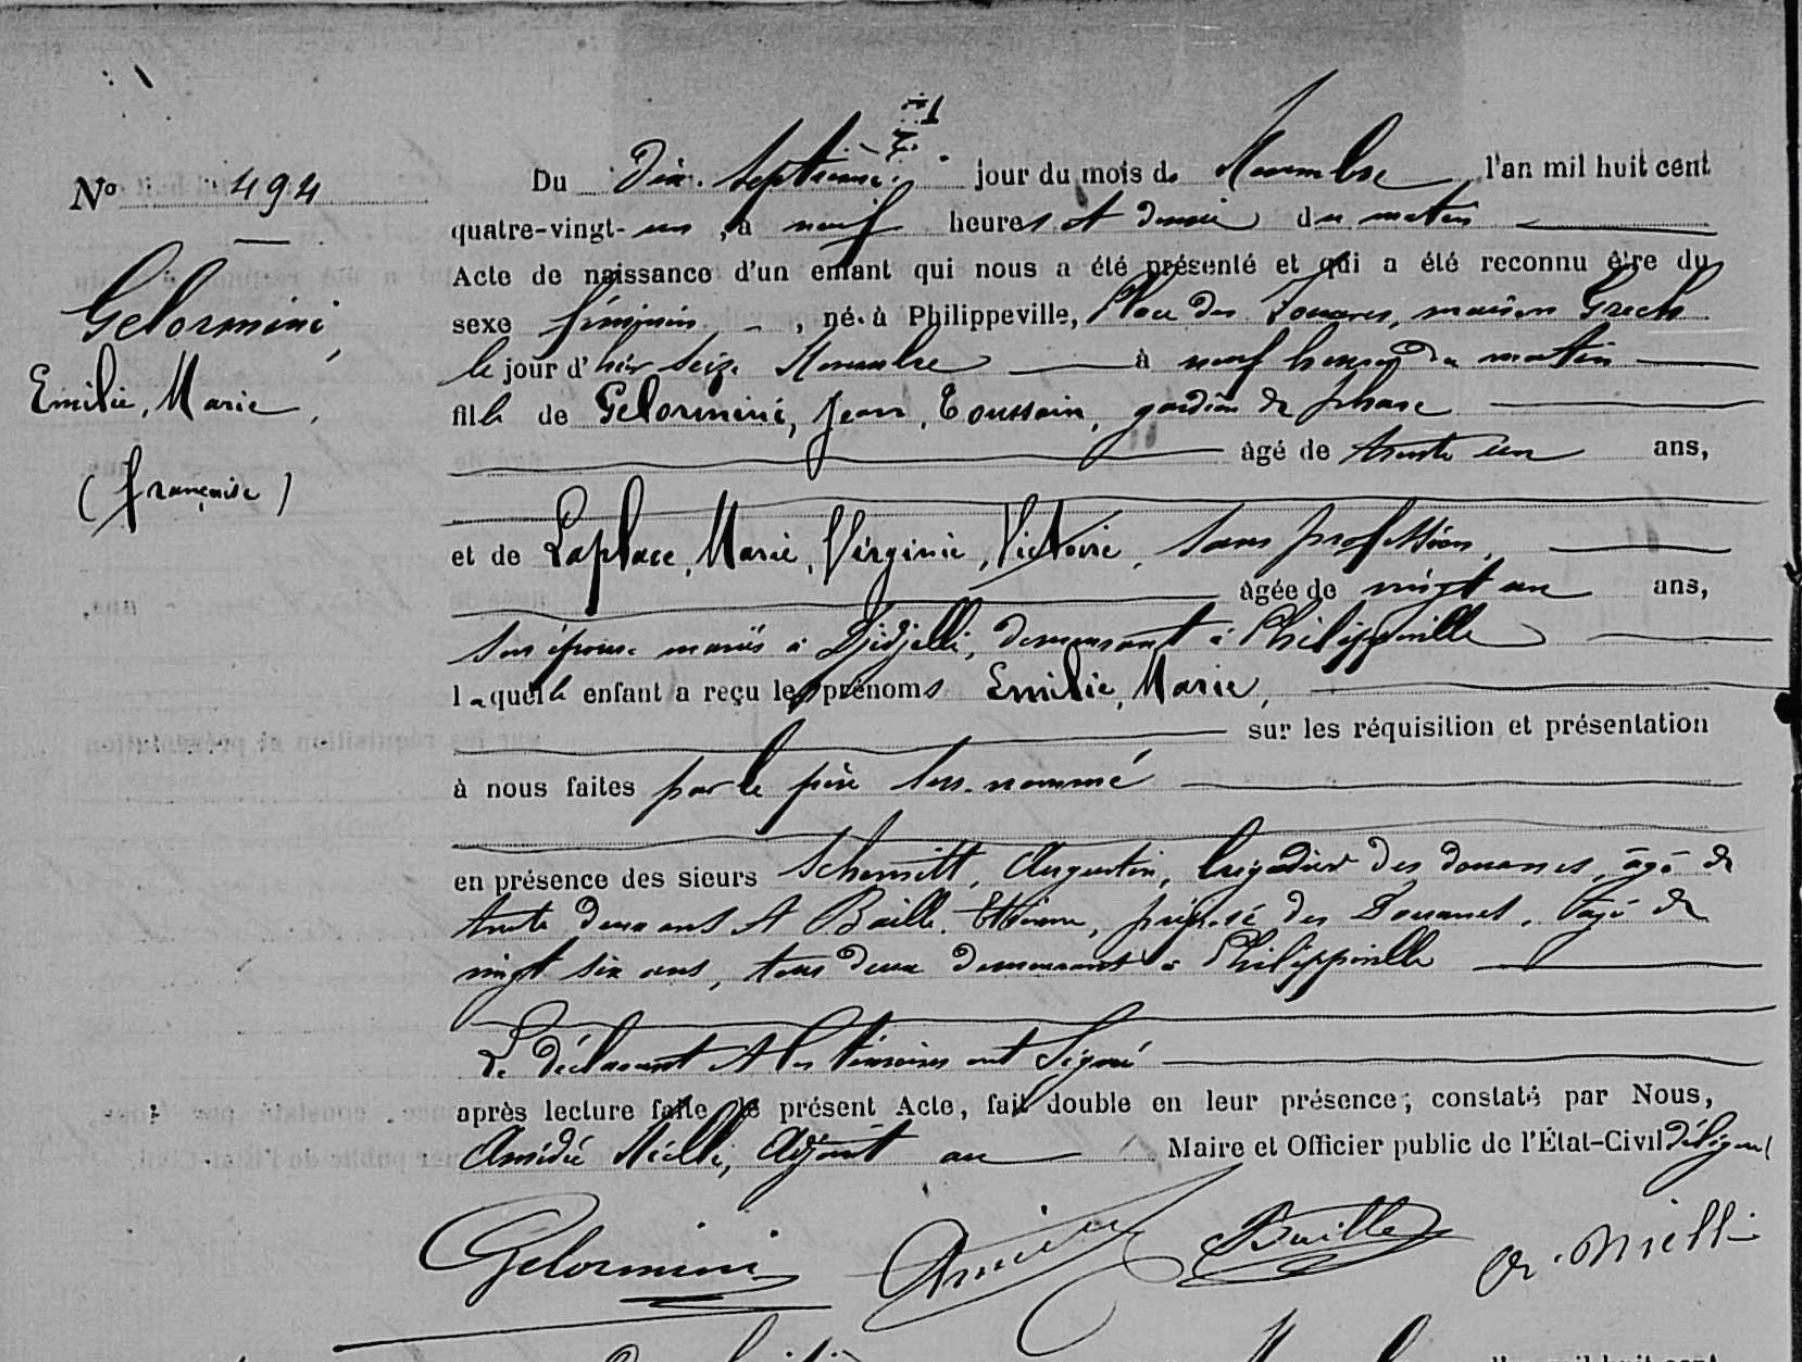 N° 494
Gelormini,
Emilie, Marie,
(française)
Du Dix-Septième jour du mois de Novembre l'an mil huit cent
quatre-vingt-un, à neuf heures et demie du matin
Acte de naissance d'un enfant qui nous a été présenté et qui a été reconnu être du
sexe féminin, né à Philippeville, Place des Zouaves, maison Grech
le jour d'hier seize Novembre à neuf heures du matin
fille de Gelormini, Jean, Toussain, gardien de phare
âgé de trente un ans,
et de Laplace, Marie, Virginie, Victoire, sans profession,
âgée de vingt un ans,
son épouse mariés à Djidjelli, demeurant à Philippeville
laquelle enfant a reçu les prénoms Emilie, Marie,
sur les réquisition et présentation
à nous faites par le père sus-nommé
en présence des sieurs Schmitt, Augustin, brigadier des douanes, âgé de
trente deux ans et Baille, Etienne, préposé des Douanes, âgé de
vingt six ans, tous deux demeurant à Philippeville
Le déclarant et les témoins ont signé
après lecture faite le présent Acte, fait double en leur présence; constaté par Nous,
Amédée Nielli, Adjoint au Maire et Officier public de l'État-Civil délégué
Gelormini Baille A. Nielli
l'an mil huit cent